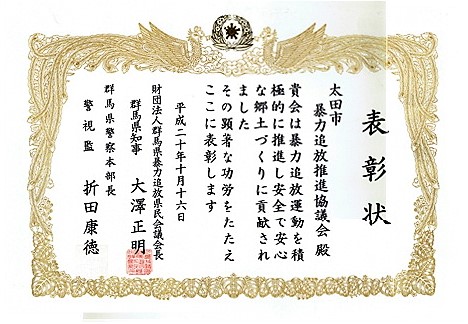 表彰状
太田市
暴力追放推進協議会 殿
貴会は暴力追放運動を積
極的に推進し安全で安心
な郷土づくりに貢献され
ました
その顕著な功労をたたえ
ここに表彰します
平成二十年十月十六日
財団法人群馬県暴力追放県民会議会長
群馬県知事 大澤正明
群馬県警察本部長
警視監 折田康徳